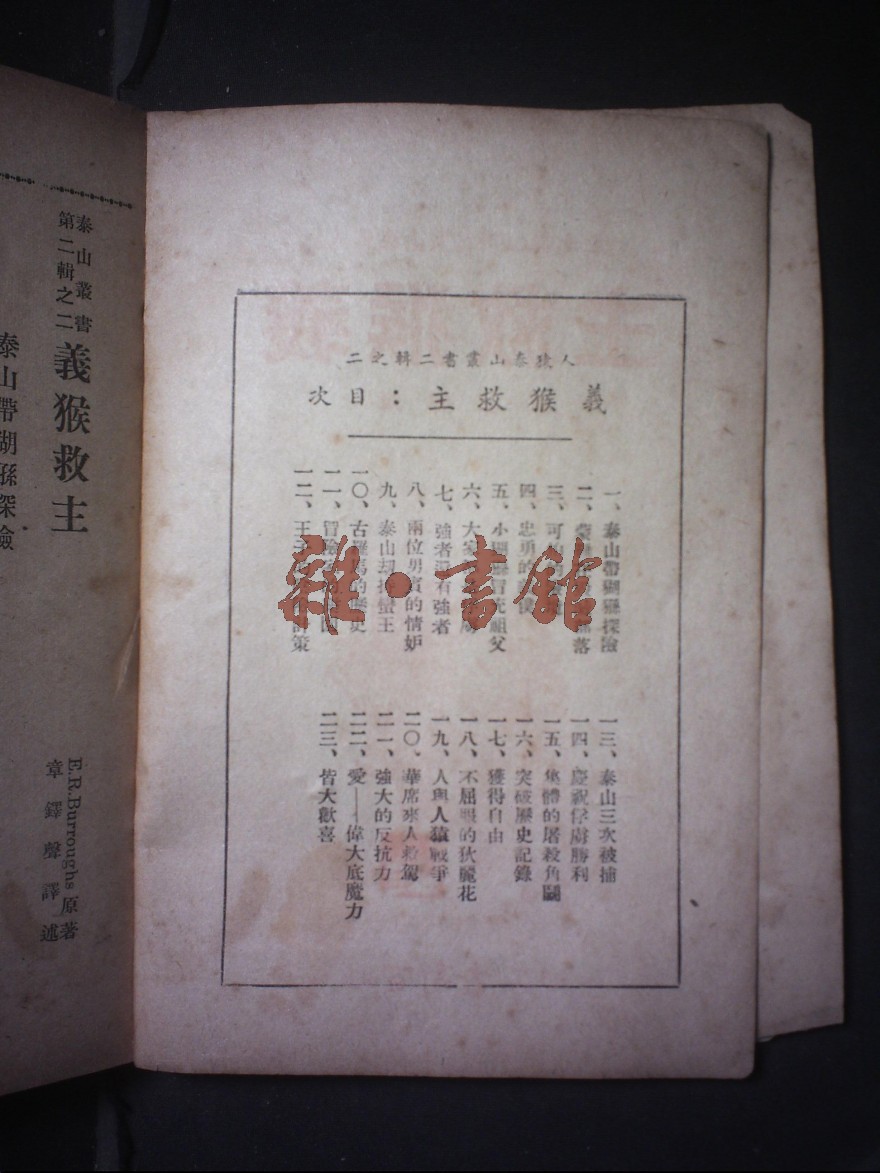 人猿泰山叢書二輯之二
義猴救主：目次
一、泰山帶猢猻探險
二、落
三、可
四、忠勇的僕
五、小祖父
六、大家
七、強者還有強者
八、兩位男賓的情妒
九、泰山劫擄蠻王
一〇、古羅馬的歷史
一一、冒險
一二、王子策
一三、泰山三次被捕
一四、慶祝俘虜勝利
一五、集體的屠殺角鬭
一六、突破歷史記錄
一七、獲得自由
一八、不屈服的狄麗花
一九、人與人猿戰爭
二〇、華席來人救駕
二一、強大的反抗力
二二、愛——偉大底魔力
二三、皆大歡喜
雜·書館
泰山叢書
第二輯之二
義猴救主
E.R.Burroughs原著
章鐸聲譯述
泰山帶湖猻深險